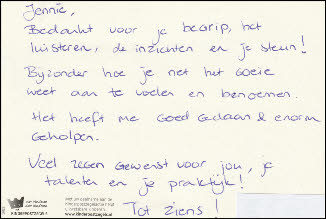 Jennie,
Bedankt voor je begrip, het
luisteren, de inzichten en je steun!
Byzonder hoe je net het goeie
weet aan te voelen en benoemen.
Het heeft me goed gedaan & enorm
geholpen.
Veel zegen gewenst voor jou, je
talenten en je praktijk!
Tot ziens!
KINDERPOSTZEGELS
www.kinderpostzegels.nl